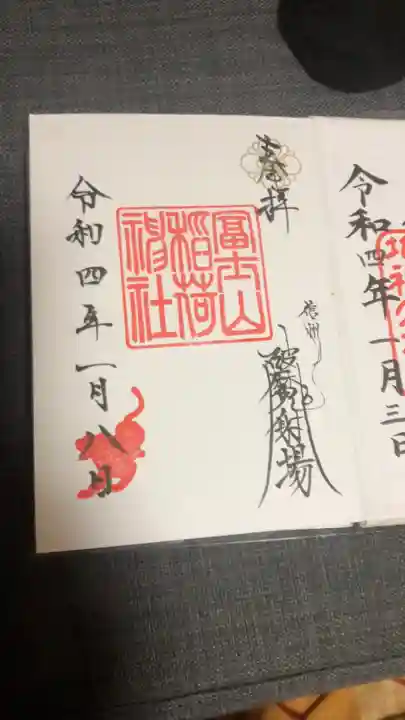 奉拝
信州
射場
冨士山
稲荷
神社
令和四年一月八日
令和四年一月三日